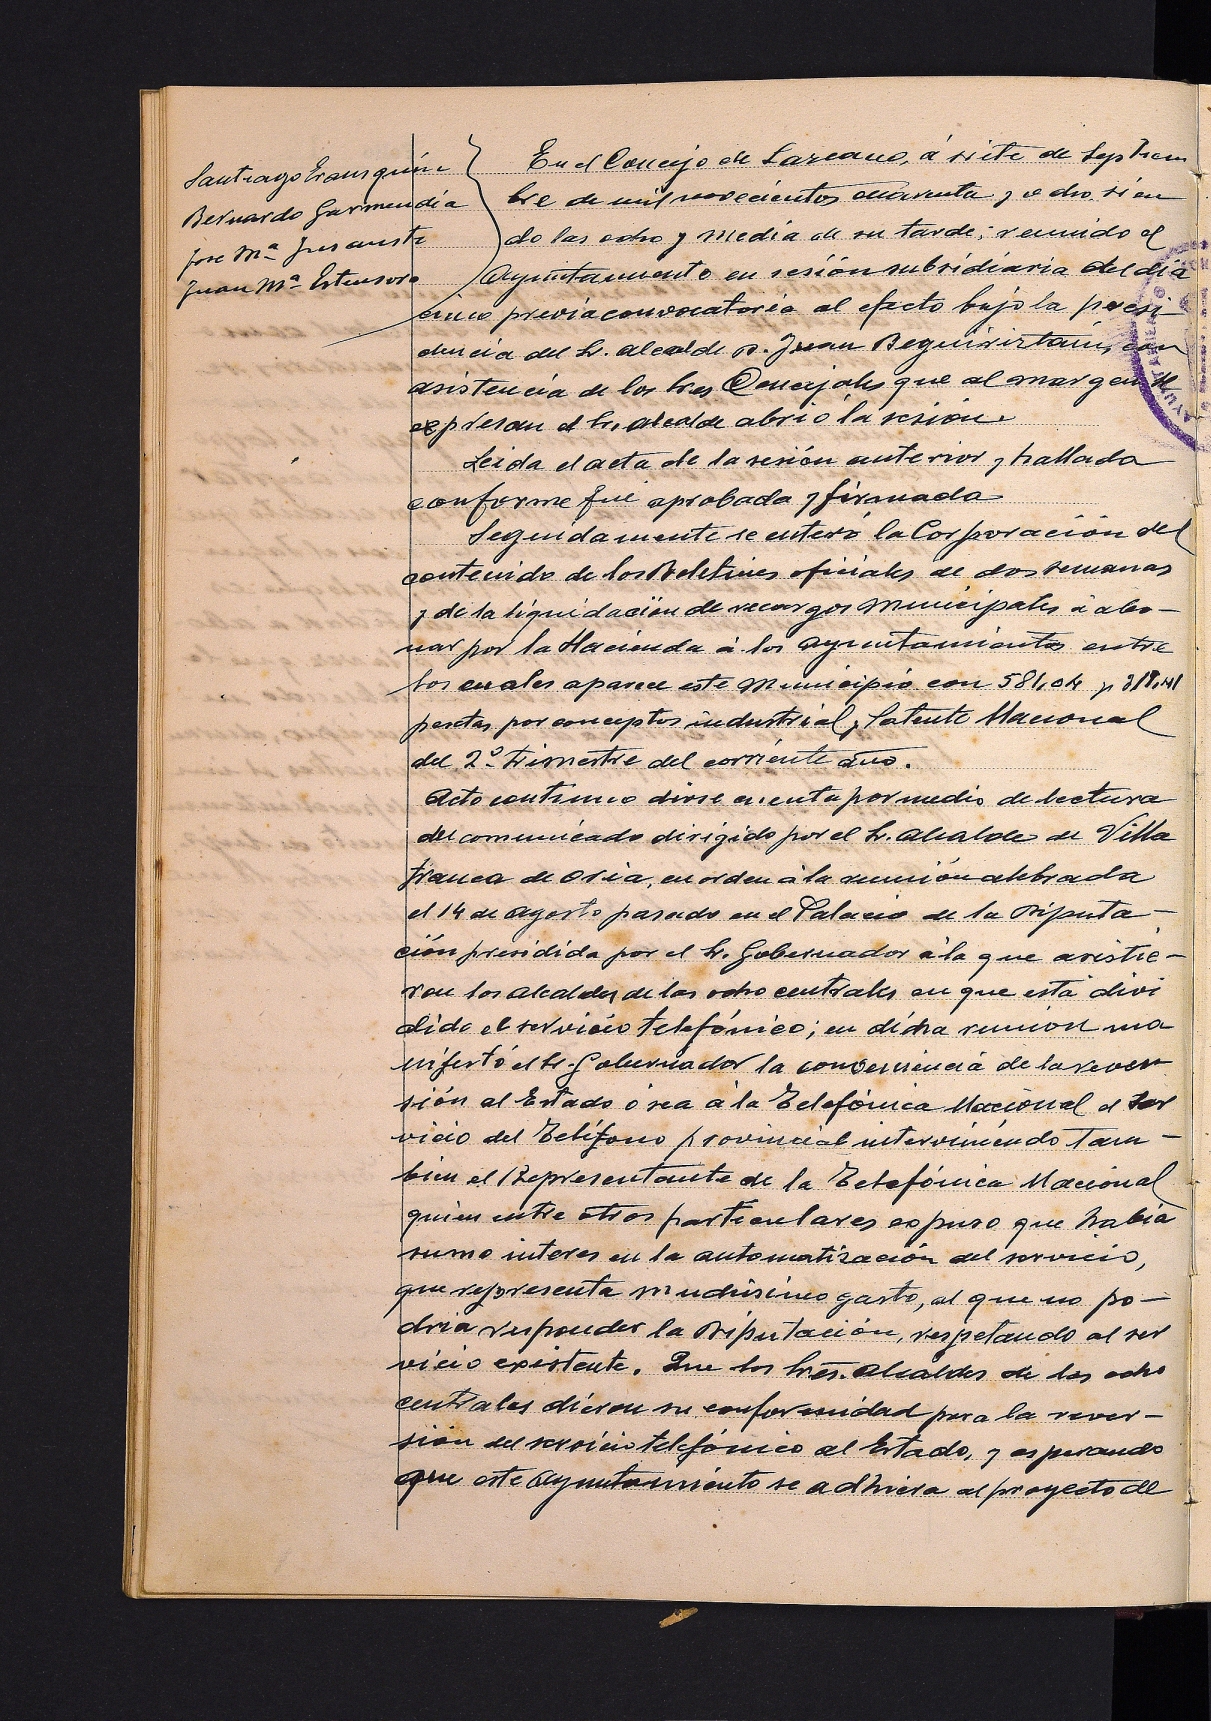 Santiago Irausquin
Bernardo Garmendia
Jose Mª Insausti
Juan Mª Estensoro
En el Concejo de Lazcano, á siete de Septiem
bre de mil novecientos cuarenta y ocho sien
do las ocho y media de su tarde; reunido el
Ayuntamiento en sesión subsidiaria del dia
cinco previa convocatoria al efecto bajo la presi
dencia del Sr. alcalde D. Juan Beguiristain, con
asistencia de los Sres Concejales que al margen se
expresan el Sr. alcalde abrió la sesión.
Leida el acta de la sesión anterior y hallada
conforme fué aprobada y firmada
Seguidamente se enteró la Corporación del
contenido de los Boletines oficiales de dos semanas
y de la liquidación de recargos municipales á abo-
nar por la Hacienda á los ayuntamientos entre
los cuales aparece este Municipio con 581,04 y 318,41
pesetas por conceptos industrial y Patente Nacional
del 2º trimestre del corriente año.
Acto continuo diose cuenta por medio de lectura
del comunicado dirigido por el Sr. alcalde de Villa
franca de Oria, en orden á la reunión celebrada
el 14 de agosto pasado en el Palacio de la Diputa-
ción presidida por el Sr. Gobernador á la que asistie-
ron los alcaldes de las ocho centrales en que está divi
dido el servicio telefónico; en dicha reunion ma
nifestó el Sr. Gobernador la conveniencia de la rever
sión al Estado ó sea á la Telefónica Nacional el ser
vicio del Teléfono provincial interviniendo tam-
bien el Representante de la Telefónica Nacional
quien entre otros particulares expuso que había
sumo interes en la automatización del servicio,
que representa muchisimo gasto, al que no po-
dria responder la Diputación, respetando al ser
vicio existente. Que los Sres. alcaldes de las ocho
centrales dieron su conformidad para la rever-
sión del servicio telefónico al Estado, y esperando
que este Ayuntamiento se adhiera al proyecto de